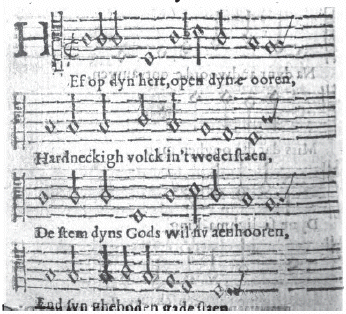 HEf op dyn hert, open dyne ooren,
Hardneckigh volck in't wederstaen,
De stem dyns Gods wil nv aenhooren,
End syn gheboden gade slaen